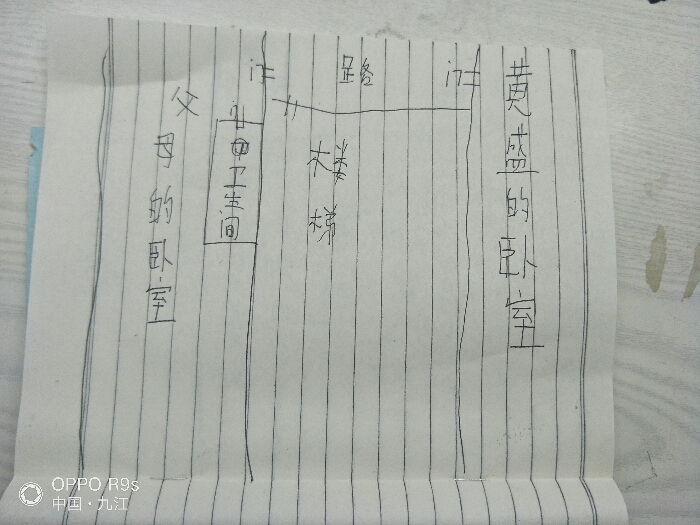 父母的卧室
卫生间
路
楼梯
黄盛的卧室
OPPO R9s
中国·九江